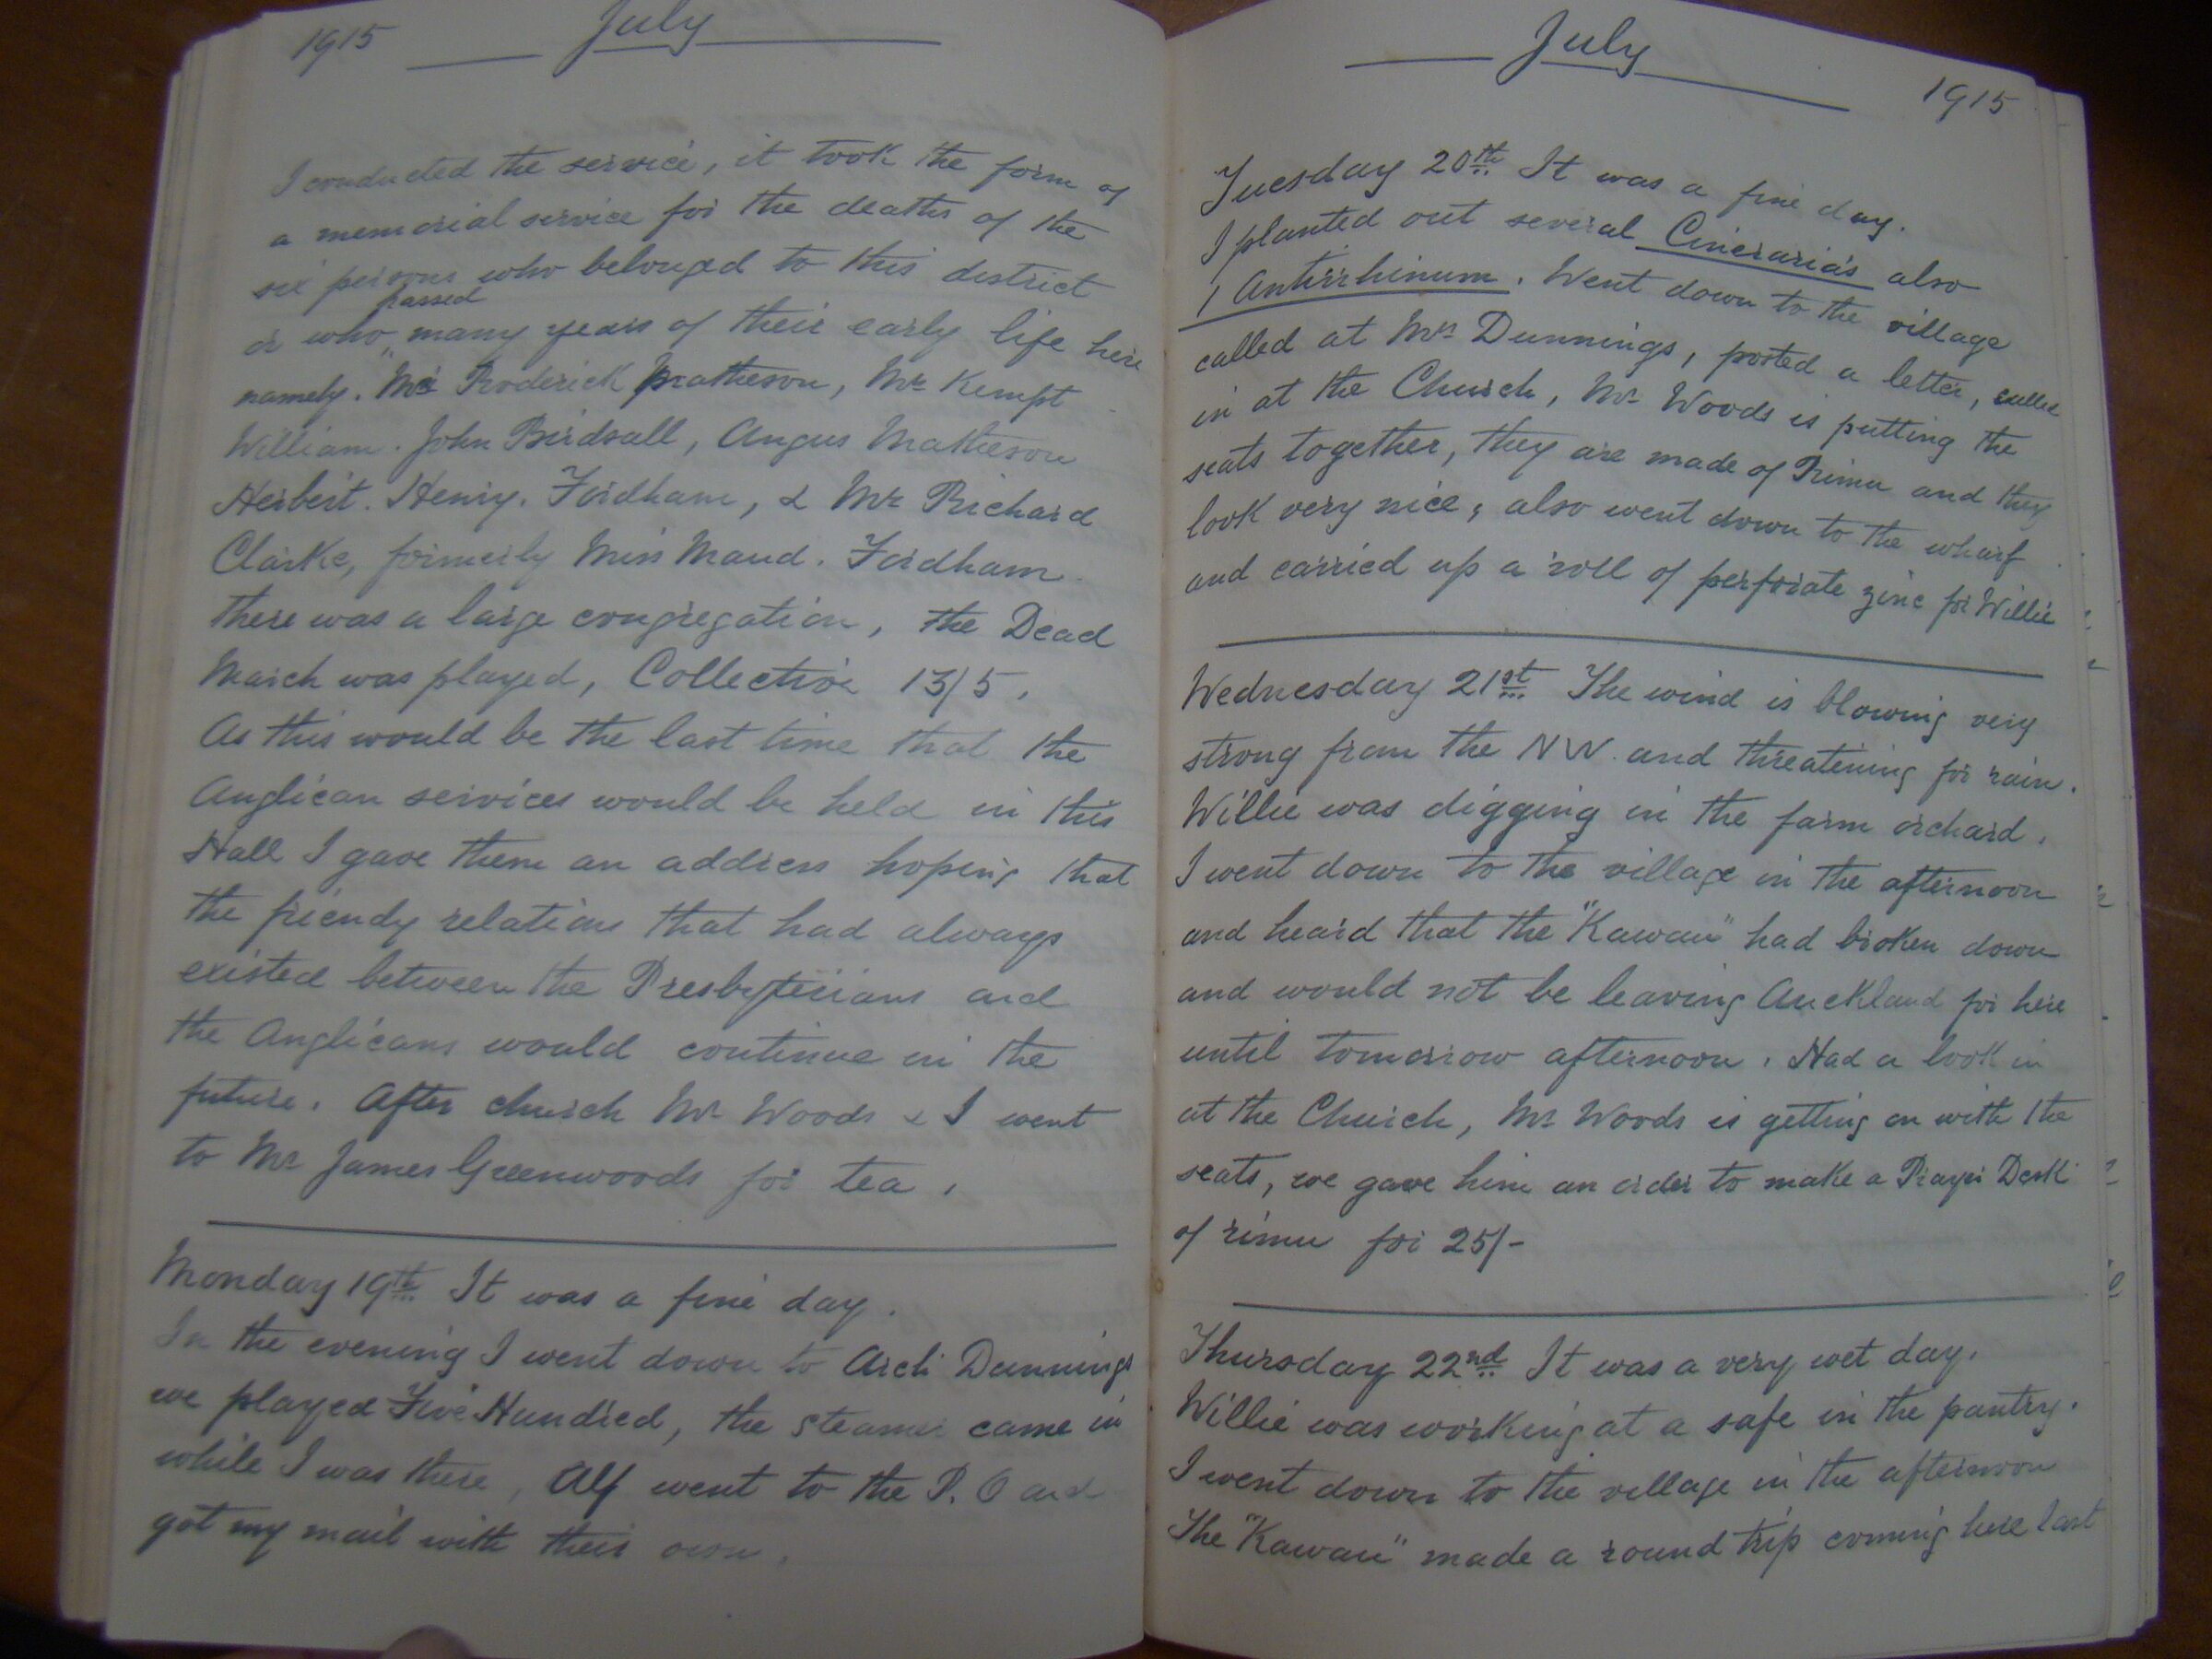 1915 July
I conducted the service, it took the form of
a memorial service for the deaths of the
six persons who belonged to this district
or who passed many years of their early life here
namely. Mr Roderick Matheson, Mr Kempt
William. John Birdsall, Angus Matheson
Herbert. Henry. Fordham, & Mrs Richard
Clarke, formerly Miss Maud. Fordham
there was a large congregation, the Dead
March was played, Collection 13/5.
As this would be the last time that the
Anglican services would be held in this
Hall I gave them an address hoping that
the friendy relations that had always
existed between the Presbyterians and
the Anglicans would continue in the
future. After church Mr Woods & I went
to Mr James Greenwoods for tea.
Monday 19th It was a fine day.
In the evening I went down to Arch Dunnings
we played Five Hundred, the steamer came in
while I was there, Alf went to the P.O and
got my mail with their own.
July 1915
Tuesday 20th It was a fine day.
I planted out several Cineraria's also
1 Antirrhinum. Went down to the village
called at Mrs Dunnings, posted a letter, called
in at the Church, Mr Woods is putting the
seats together, they are made of Rimu and they
look very nice, also went down to the wharf
and carried up a roll of perforate zinc for Willie
Wednesday 21st The wind is blowing very
strong from the NW. and threatening for rain.
Willie was digging in the farm orchard.
I went down to the village in the afternoon
and heard that the "Kawau" had broken down
and would not be leaving Auckland for here
until tomorrow afternoon. Had a look in
at the Church, Mr Woods is getting on with the
seats, we gave him an order to make a Prayer Desk
of rimu for 25/-
Thursday 22nd It was a very wet day.
Willie was working at a safe in the pantry.
I went down to the village in the afternoon
The "Kawau" made a round trip coming here last